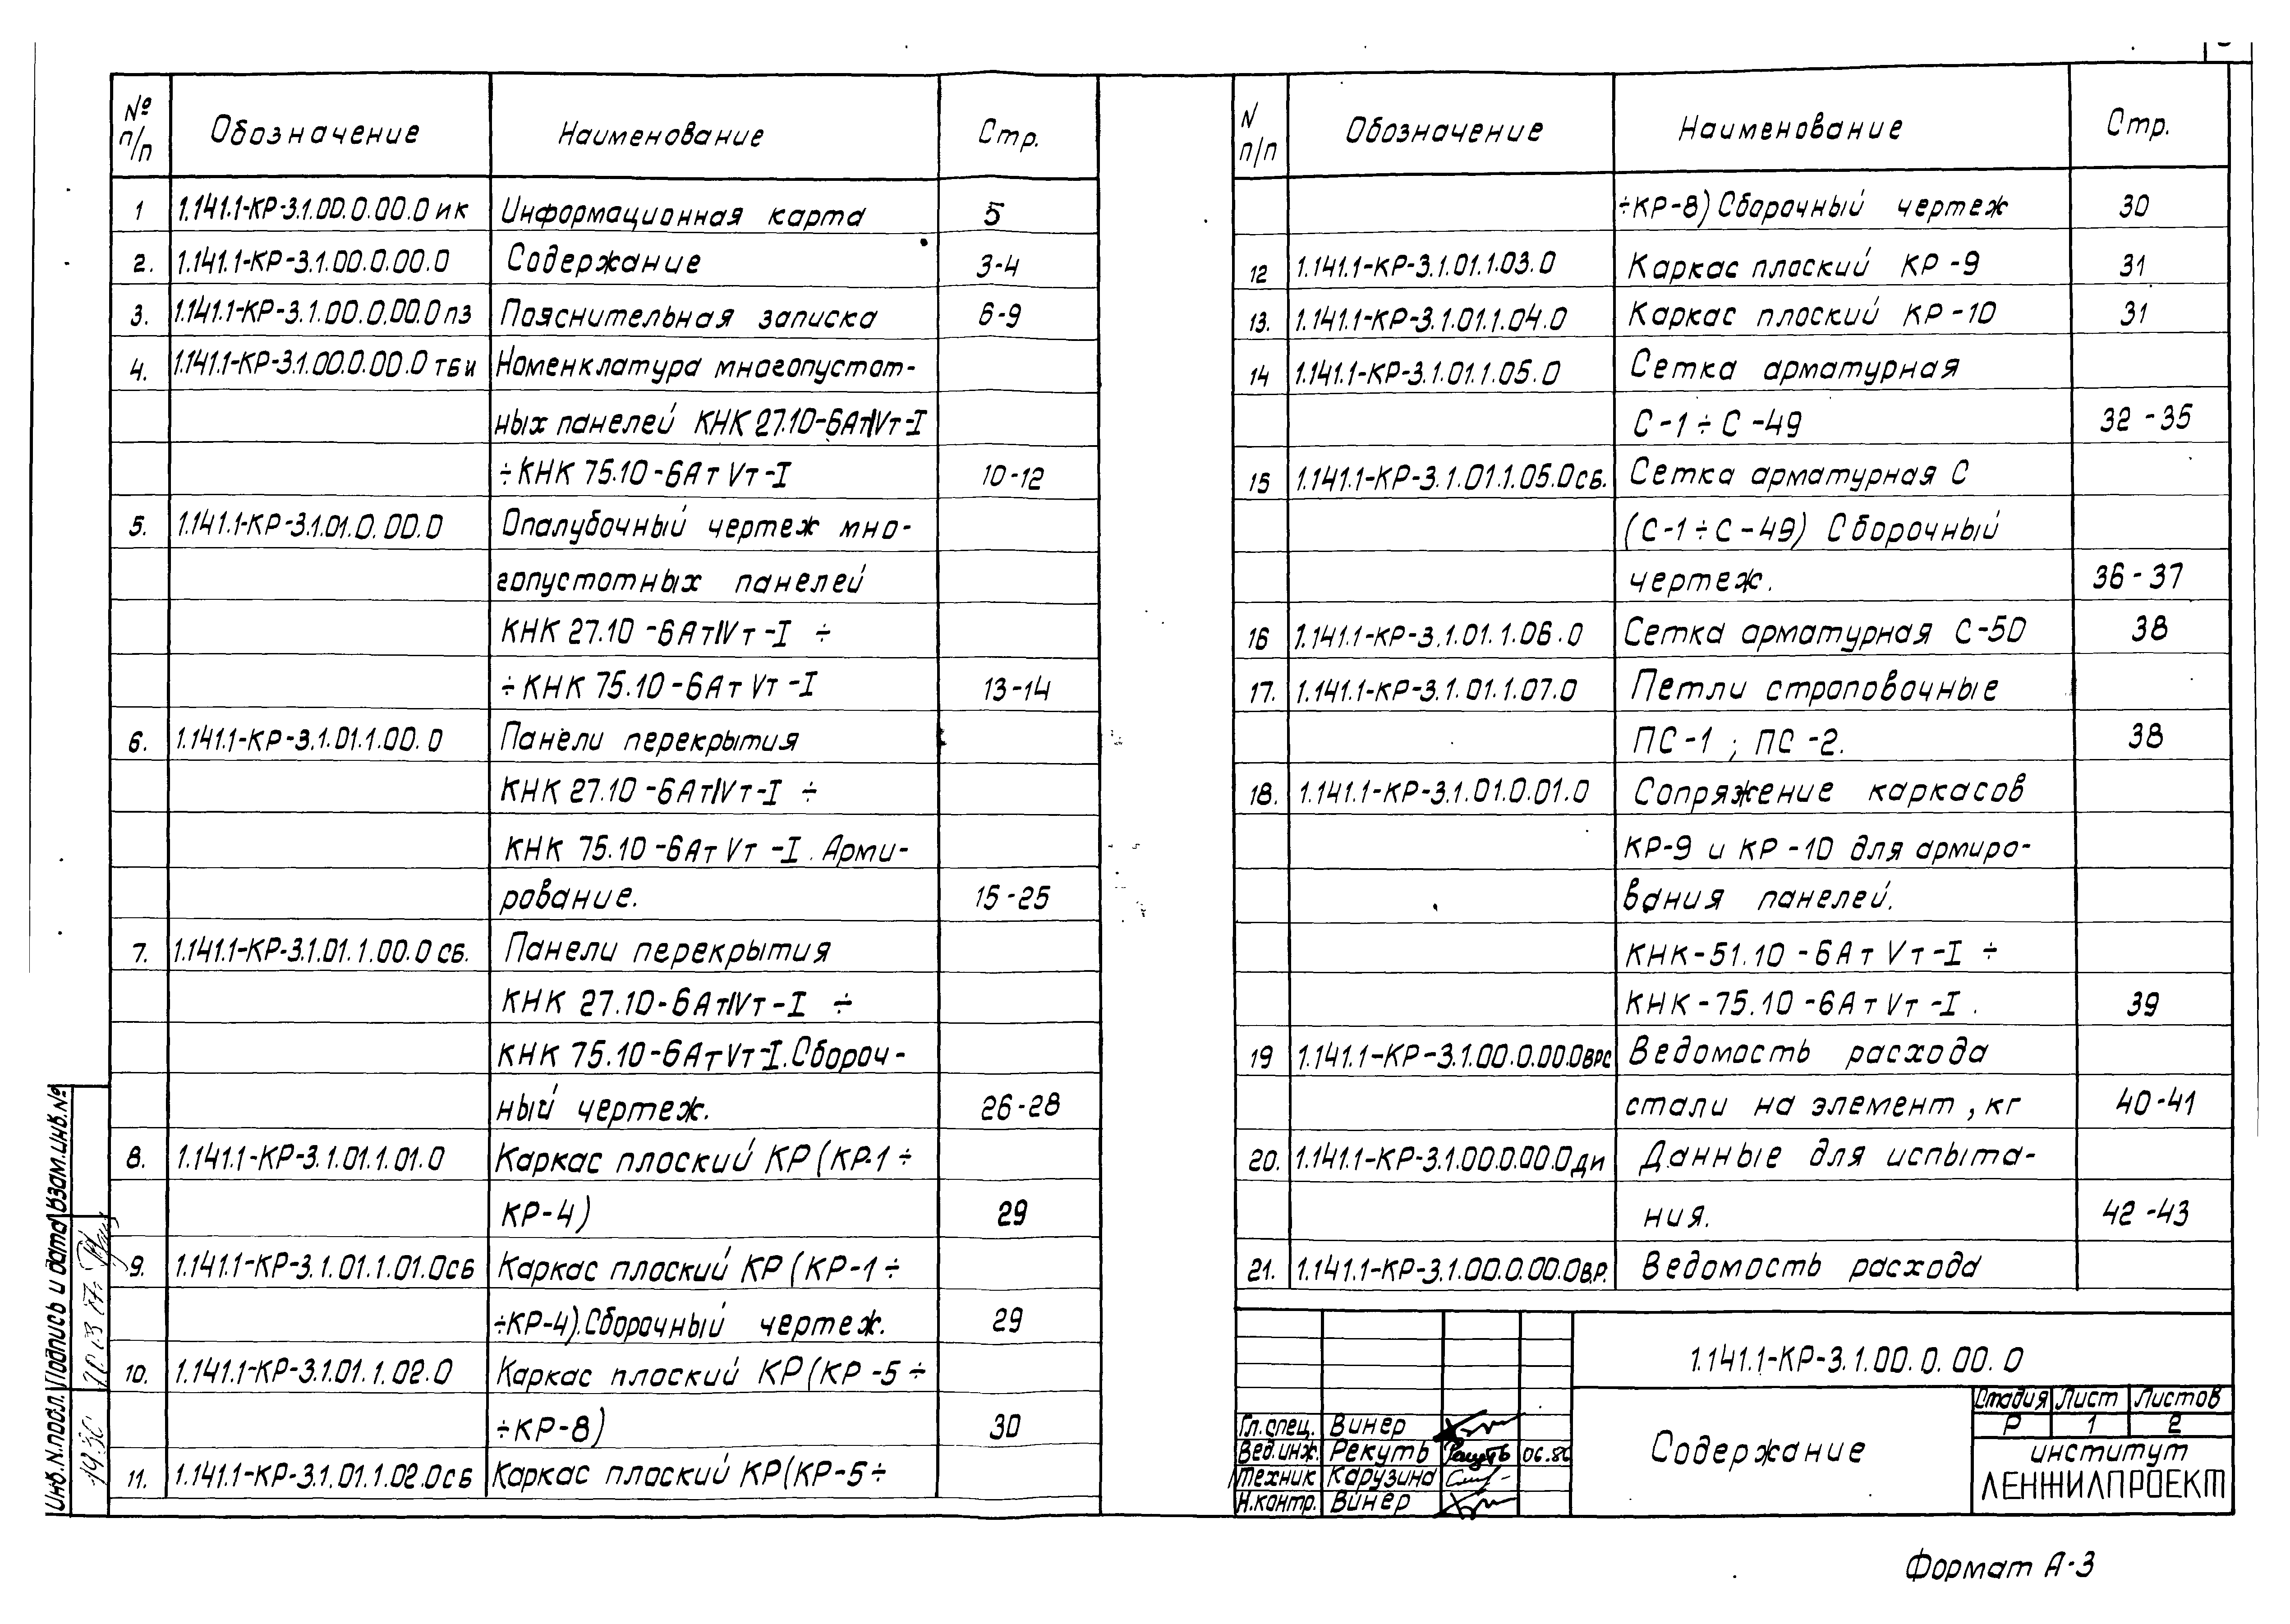 № п/п Обозначение Наименование Стр.
1 1.141.1-КР-3.1.00.0.00.0 ик Информационная карта 5
2. 1.141.1-КР-3.1.00.0.00.0 Содержание 3-4
3. 1.141.1-КР-3.1.00.0.00.0 пз Пояснительная записка 6-9
4. 1.141.1-КР-3.1.00.0.00.0 тби Номенклатура многопустот-
ных панелей КНК 27.10-6АтIVт-I
÷КНК 75.10-6Ат Vт-I 10-12
5. 1.141.1-КР-3.1.01.0.00.0 Опалубочный чертеж мно-
гопустотных панелей
КНК 27.10-6АтIVт-I ÷
÷КНК 75.10-6Ат Vт-I 13-14
6. 1.141.1-КР-3.1.01.1.00.0 Панели перекрытия
КНК 27.10-6АтIVт-I ÷
КНК 75.10-6Ат Vт-I. Арми-
рование. 15-25
7. 1.141.1-КР-3.1.01.1.00.0 сб. Панели перекрытия
КНК 27.10-6АтIVт-I ÷
КНК 75.10-6Ат Vт-I. Сбороч-
ный чертеж. 26-28
8. 1.141.1-КР-3.1.01.1.01.0 Каркас плоский КР (КР-1 ÷
КР-4) 29
9. 1.141.1-КР-3.1.01.1.01.0сб Каркас плоский КР (КР-1 ÷
÷КР-4). Сборочный чертеж. 29
10. 1.141.1-КР-3.1.01.1.02.0 Каркас плоский КР (КР-5 ÷
÷КР-8) 30
11. 1.141.1-КР-3.1.01.1.02.0сб Каркас плоский КР(КР-5÷
N п/п Обозначение Наименование Стр.
÷КР-8) Сборочный чертеж 30
12 1.141.1-КР-3.1.01.1.03.0 Каркас плоский КР-9 31
13. 1.141.1-КР-3.1.01.1.04.0 Каркас плоский КР-10 31
14 1.141.1-КР-3.1.01.1.05.0 Сетка арматурная
С-1÷С-49 32-35
15 1.141.1-КР-3.1.01.1.05.0сб. Сетка арматурная С
(С-1÷С-49) Сборочный
чертеж. 36-37
16 1.141.1-КР-3.1.01.1.06.0 Сетка арматурная С-50 38
17. 1.141.1-КР-3.1.01.1.07.0 Петли строповочные
ПС-1 ; ПС-2. 38
18. 1.141.1-КР-3.1.01.0.01.0 Сопряжение каркасов
КР-9 и КР-10 для армиро-
вания панелей.
КНК-51.10-6Ат Vт-I ÷
КНК-75.10-6Ат Vт-I. 39
19 1.141.1-КР-3.1.00.0.00.0врс Ведомость расхода
стали на элемент, кг 40-41
20. 1.141.1-КР-3.1.00.0.00.0ди Данные для испыта-
ния. 42-43
21. 1.141.1-КР-3.1.00.0.00.0в.р. Ведомость расхода
1.141.1-КР-3.1.00.0.00.0
Содержание
Стадия Лист Листов
Р 1 2
институт
ЛЕНЖИЛПРОЕКТ
Гл.спец. Винер
Вед.инж. Рекуть 06.86
Техник Карузина
Н.контр. Винер
Инв.N.подл. Подпись и дата Взам.инв.№
Формат А-3